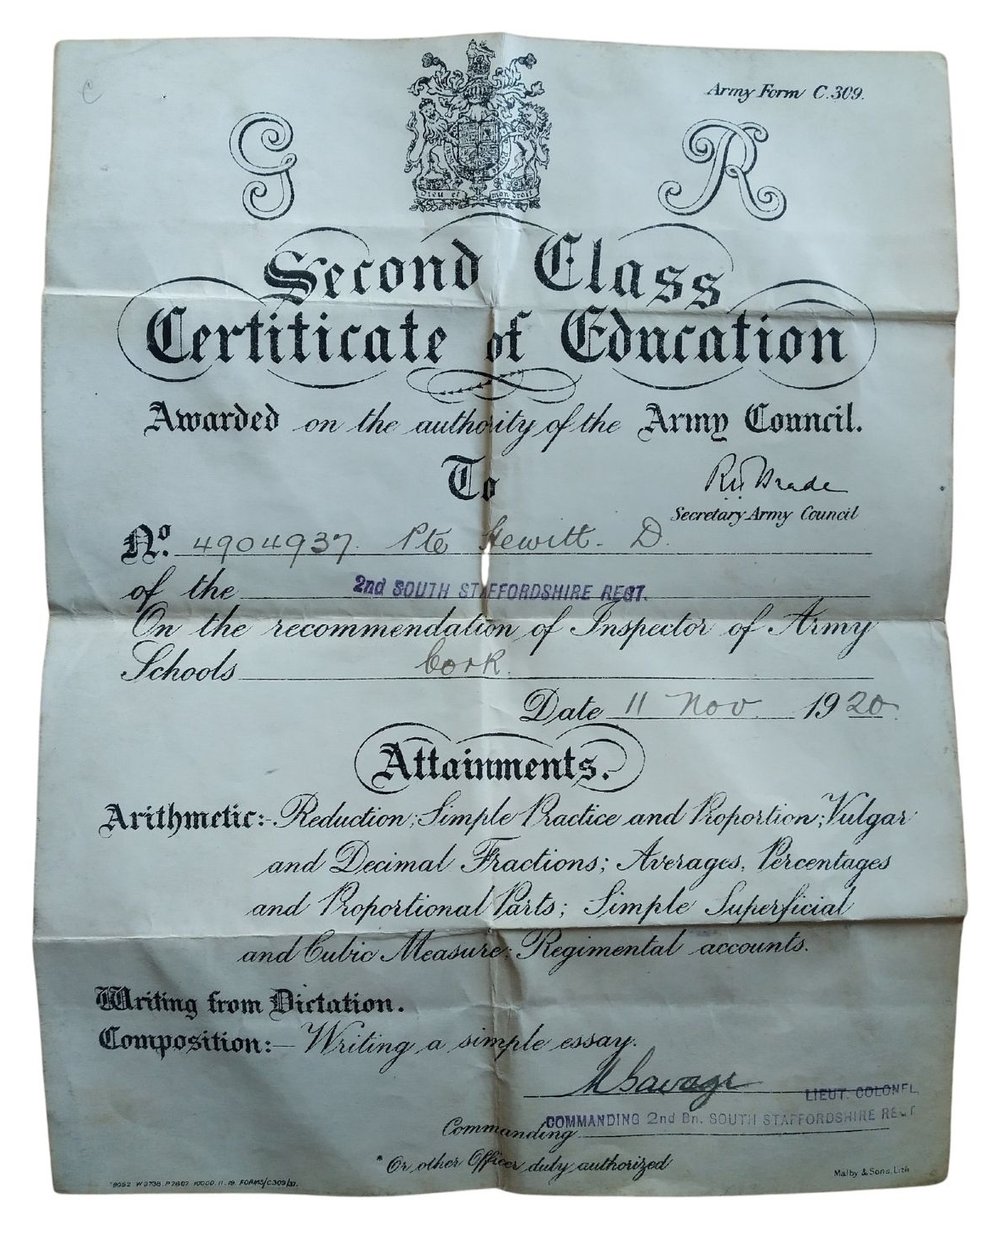 C
Army Form C.309.
G R
Dieu et mon droit
Second Class
Certificate of Education
Awarded on the authority of the Army Council.
To
Secretary Army Council
No. 4904937. Pte Hewitt. D.
of the 2nd SOUTH STAFFORDSHIRE REGT.
On the recommendation of Inspector of Army
Schools Cork.
Date 11 Nov 1920.
Attainments.
Arithmetic:- Reduction; Simple Practice and Proportion; Vulgar
and Decimal Fractions; Averages, Percentages
and Proportional Parts; Simple Superficial
and Cubic Measure; Regimental accounts.
Writing from Dictation.
Composition:- Writing a simple essay.
M Savage
LIEUT. COLONEL,
COMMANDING 2nd Bn. SOUTH STAFFORDSHIRE REGT
Commanding
* Or other Officer duly authorized
Malby & Sons, Lith